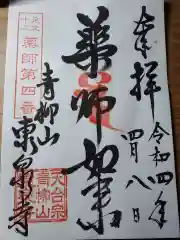 奉拝
令和四年
四月八日
薬師如来
天台宗
青柳山
薬師第四番
青柳山
東泉寺